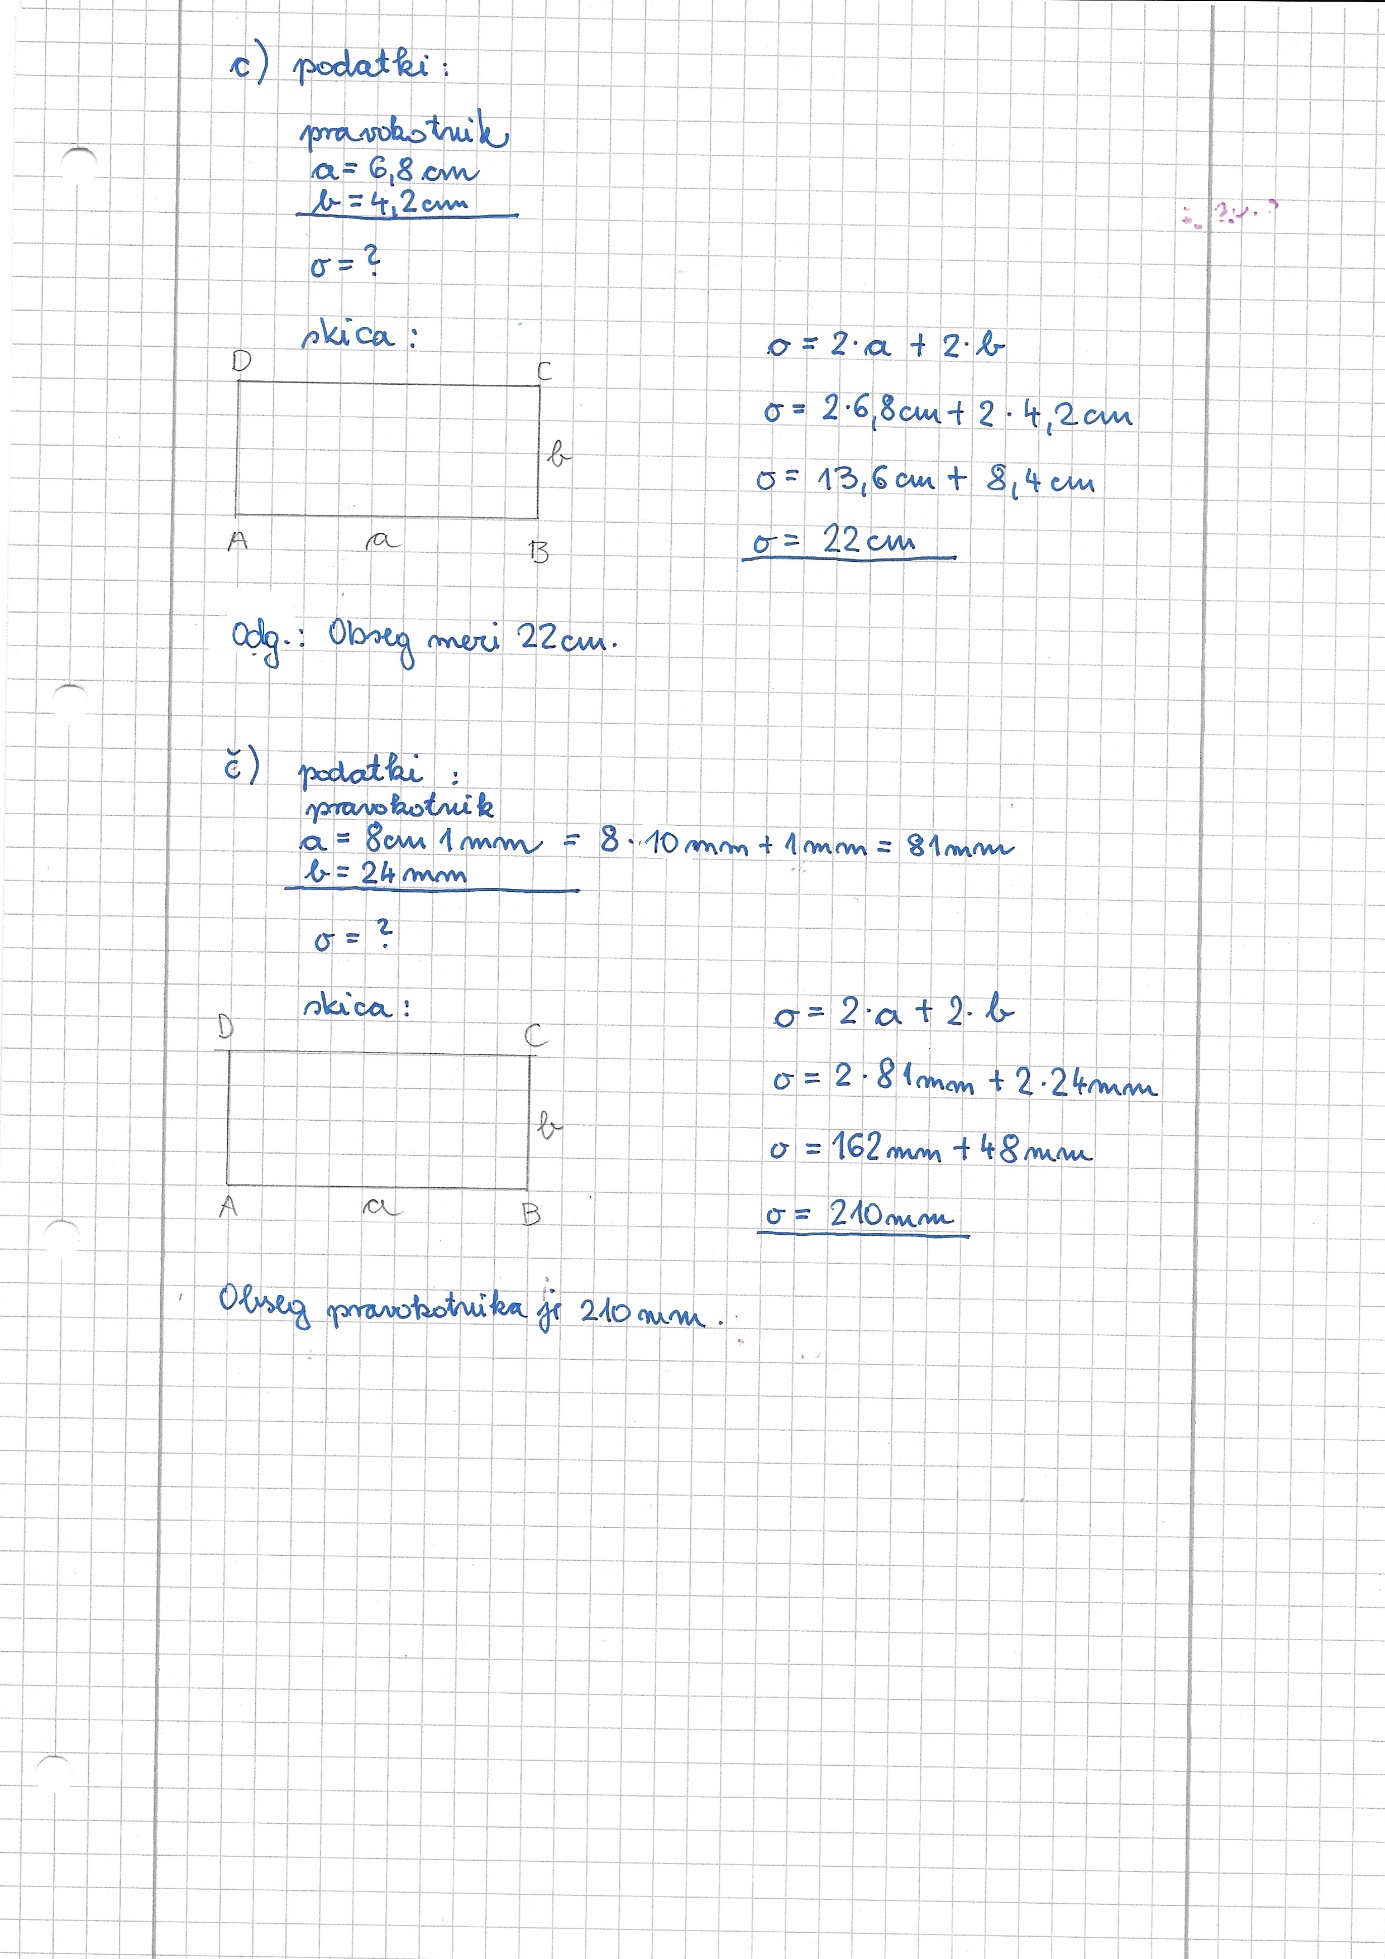 c) podatki:
pravokotnik
a = 6,8 cm
b = 4,2 cm
o = ?
skica:
D
C
b
A
a
B
o = 2·a + 2·b
o = 2·6,8 cm + 2·4,2 cm
o = 13,6 cm + 8,4 cm
o = 22 cm
Odg.: Obseg meri 22 cm.
č) podatki:
pravokotnik
a = 8 cm 1 mm = 8·10 mm + 1 mm = 81 mm
b = 24 mm
o = ?
skica:
D
C
b
A
a
B
o = 2·a + 2·b
o = 2·81 mm + 2·24 mm
o = 162 mm + 48 mm
o = 210 mm
Obseg pravokotnika je 210 mm.